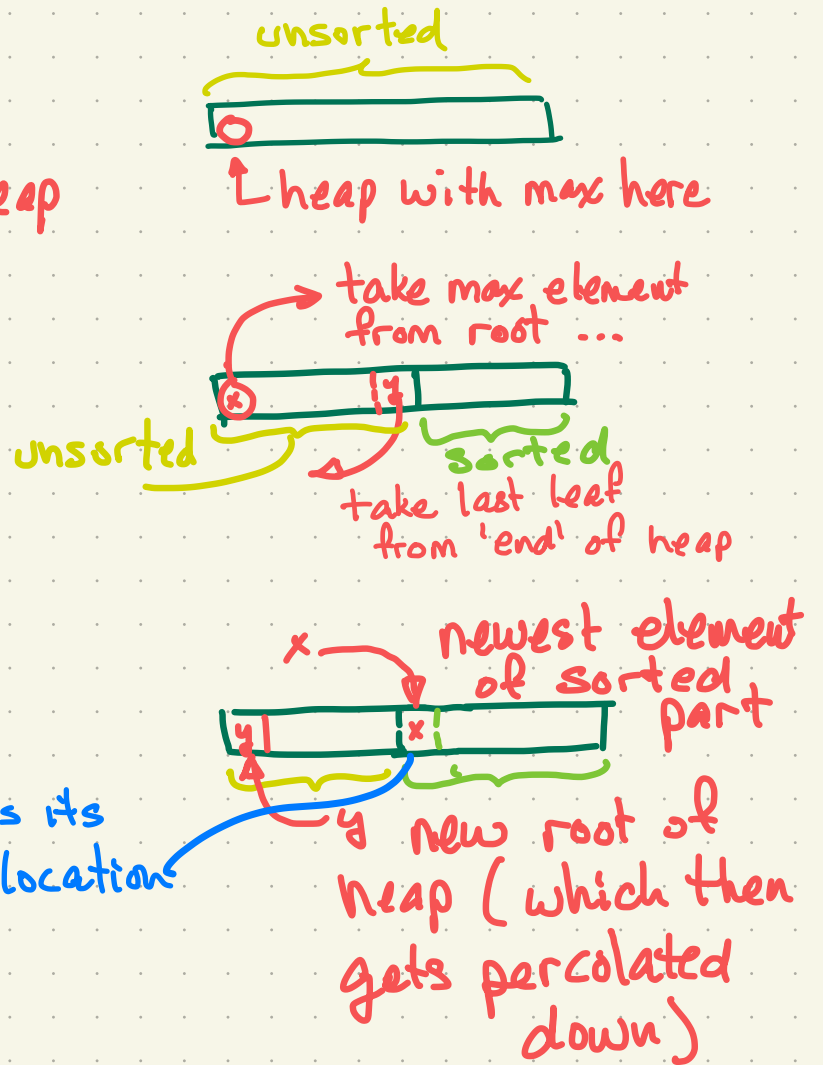 unsorted
eap
heap with max here
take max element
from root ...
x
y
unsorted
sorted
take last leaf
from 'end' of heap
x
newest element
of sorted
part
y
x
s its
location
y new root of
heap (which then
gets percolated
down)